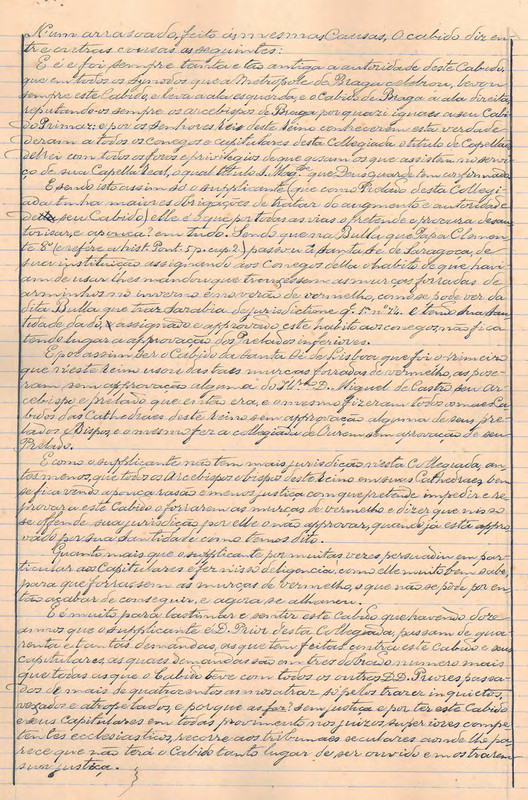 Num arrasoado, feito ás mesmas causas, o cabido diz en
tre outras cousas as seguintes:
E é e foi sempre tanta e tão antiga a autoridade deste Cabido,
que em todos os synodos que a Metropole de Braga celebrou, levou
sempre este Cabido, e leva a ala esquerda, e o Cabido de Braga a ala direita,
reputando-os sempre os arcebispos de Braga por quazi iguaes a seu Cabi
do Primaz: e por os senhores Reis deste Reino conhecerem esta verdade
deram a todos os conegos e capitulares desta Collegiada o titulo de Capellães
delrei com todos os foros e privilegios de que gosam os que assistem no servi
ço de sua Capella Real, o qual titulo S. Mag. que Deus guarde tem confirmado.
E sendo isto assim só o supplicante (que como Prelado desta Collegi
ada tinha maiores obrigações de tratar do augmento e autoridade
de seu Cabido) elle é o que por todas as vias o pretende e procura desau
torisar, e em tudo. Sendo que na Bulla que Papa Clemen
te (e refere a hist. Pont. 5 p. cap. 2) passou á Santa Sé de Saragoça, de
sua instituição assignando aos Conegos della o habito de que havi
am de usar lhes mandou que trouxessem as murças forradas de
arminhos no inverno e no verão de vermelho, como se pode ver da
dita Bulla que traz de jurisdictione q. 5. nº 74. e tendo Sua San
tidade dado, assignado e approvado este habito aos conegos, não fica
tendo lugar a approvação dos Prelados inferiores.
E por assim ser o Cabido da Santa Sé de Lisboa que foi o primeiro
que n'este Reino usou das taes murças forradas de vermelho, as pose
ram sem approvação alguma do Ill.mo D. Miguel de Castro seu Ar
cebispo e prelado que então era, e o mesmo fizeram todos os mais Ca
bidos das Cathedraes deste Reino sem approvação alguma de seus pre
lados e Bispos, e o mesmo fez a collegiada de Ourem sem aprovação de seu
Prelado.
E como o supplicante não tem mais jurisdicção n'esta Collegiada, an
tes menos, que todos os Arcebispos e bispos deste reino em suas Cathedraes, bem
se fica vendo a pouca rasão e menos justiça com que pretende impedir e re
provar a este Cabido o forrarem as murças de vermelho e dizer que nisso
se offende sua jurisdição por elle o não approvar, quando já está appro
vado por sua Santidade como temos dito.
Quanto mais que o supplicante por muitas vezes persuadiu em par
ticular aos Capitulares e fez n'isso deligencia, como elle muito bem sabe,
para que forrassem as murças de vermelho, o que não se pôde por en
tão acabar de conseguir, e agora se alhanou.
E é muito para lastimar e sentir este Cabido que havendo doze
annos que o supplicante é D. Prior desta Collegiada, passam de qua
renta e tantas demandas, as que tem feitas contra este Cabido e seus
capitulares as quaes demandas são em tres dobrado numero mais
que todas as que o Cabido teve com todos os outros DD. Priores passa
dos de mais de quatrocentos annos atraz só pelos trazer inquietos,
vexados e atropelados, e porque as faz sem justiça e por ter este Cabido
e seus Capitulares em todas provimento nos juizos superiores compe
tentes ecclesiasticos, recorre aos tribunaes seculares aonde lhe pa
rece que não terá o Cabido tanto lugar de ser ouvido e mostrarem
sua justiça.